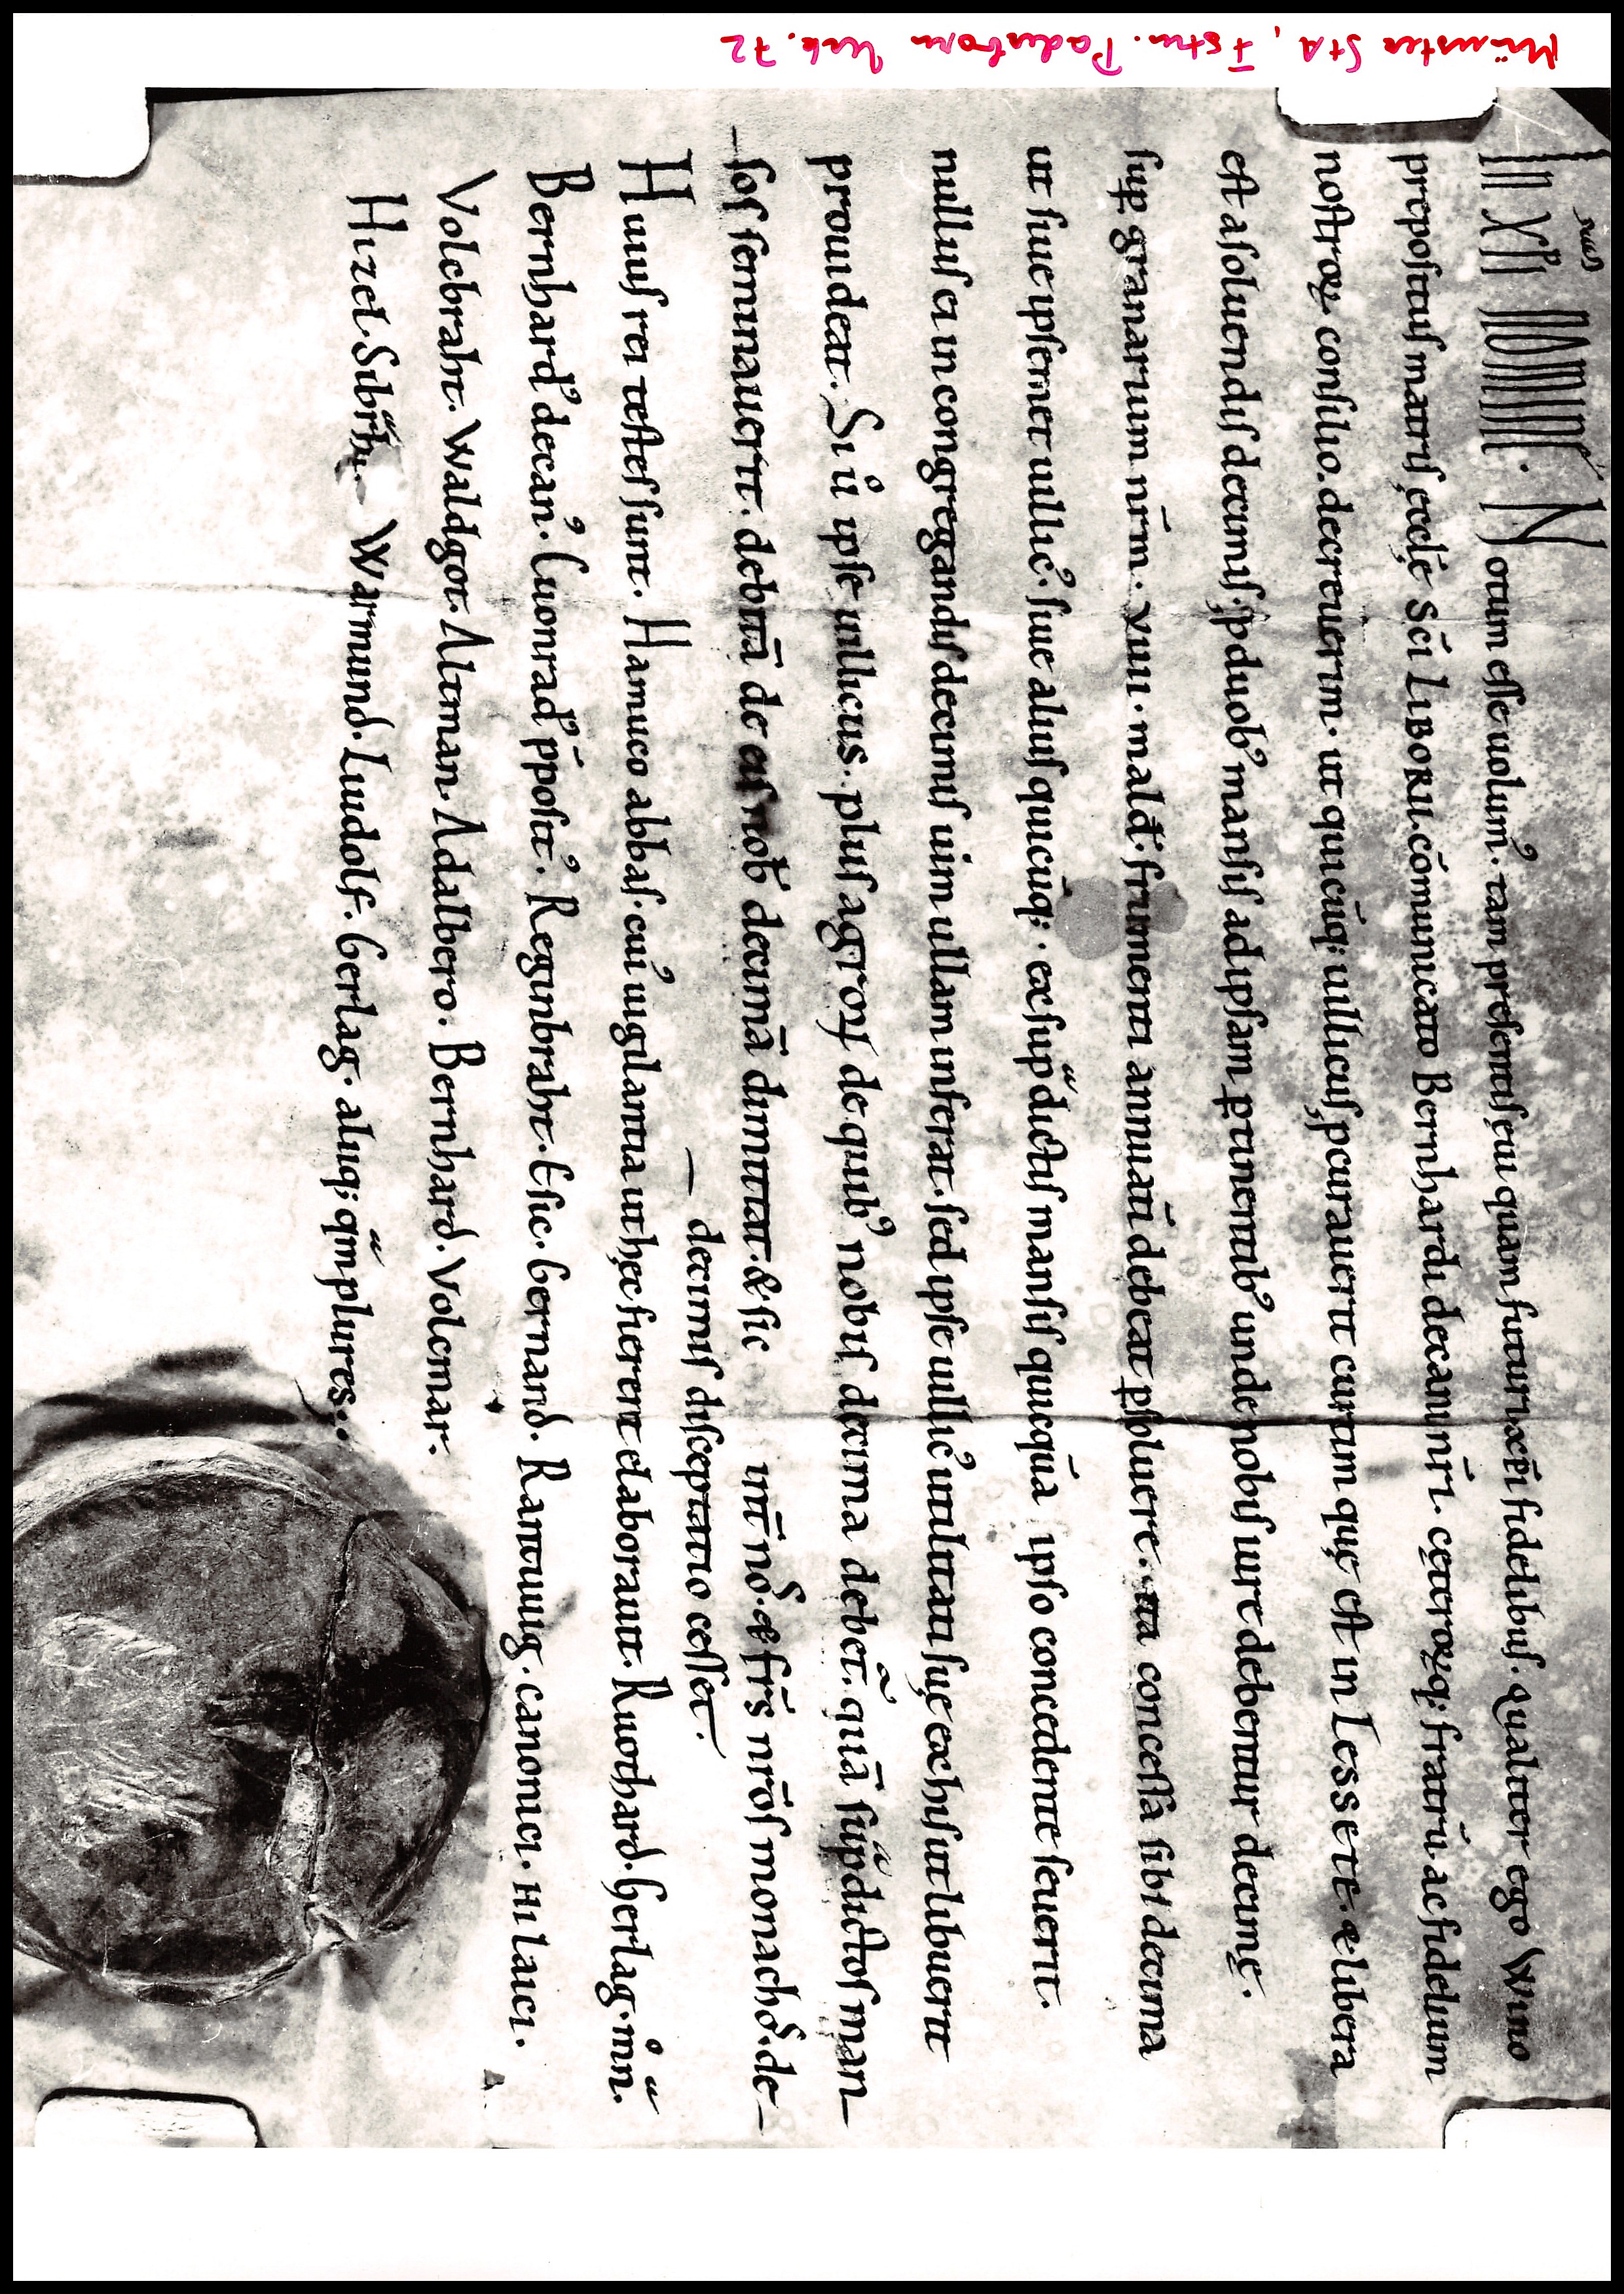 Münster StA, Fstm. Paderborn Urk. 72
IN XPI NOMINE. Notum esse uolumꝰ. tam presentis eui quam futuri. xp̄i fidelibus. qualiter ego Wino
prepositus matris ęcclę Sc̄i LIBORII. cōmunicato Bernhardi decani nr̄i. cęteroꝝq; fratrū ac fidelium
nostroꝝ consilio. decreuerim. ut quicūq; uillicus, pcurauerit curtim quę est in Lessete. & libera
est a soluendis decimis; p duobꝰ mansis ad ipsam ꝑtinentibꝰ unde nobis iure debentur decimę.
suꝑ granarium nr̄m. VIIII. mald. frumenti annuatī debeat ꝑsoluere. ita concessa sibi decima
ut siue ipsemet uillicꝰ. siue alius quicūq;. ex supᵃdictis mansis quicquā ipso concedente seuerit.
nullus ei in congregandis decimis uim ullam inferat. sed ipse uillicꝰ utilitati suę ex his ut libuerit
prouideat. Si uͦ ipse uillicus. plus agrorꝝ de quibꝰ nobis decima debet. quā supᵃdictos man-
sos seminauerit. debitā de eis nob̄ decimā dimittat. & sic int̄ nos. & frs̄ nrōs monachos. de-
decimis disceptatio cesset.
Huius rei testes sunt. Hamuco abbas. cuiꝰ uigilantia ut hęc fierent elaborauit. Ruothard. Gerlag. mͦn.
Bernhardꝰ decanꝰ. Cuonradꝰ p̄positꝰ. Reginbraht. Esic. Gernand. Rantuuig. canonici. HI laici.
Volcbraht. Waldgot. Altman. Adalbero. Bernhard. Volcmar.
Hizel. Sibrᵃht. Warmund. Liudolf. Gerlag. aliiq; qᵃmplures.